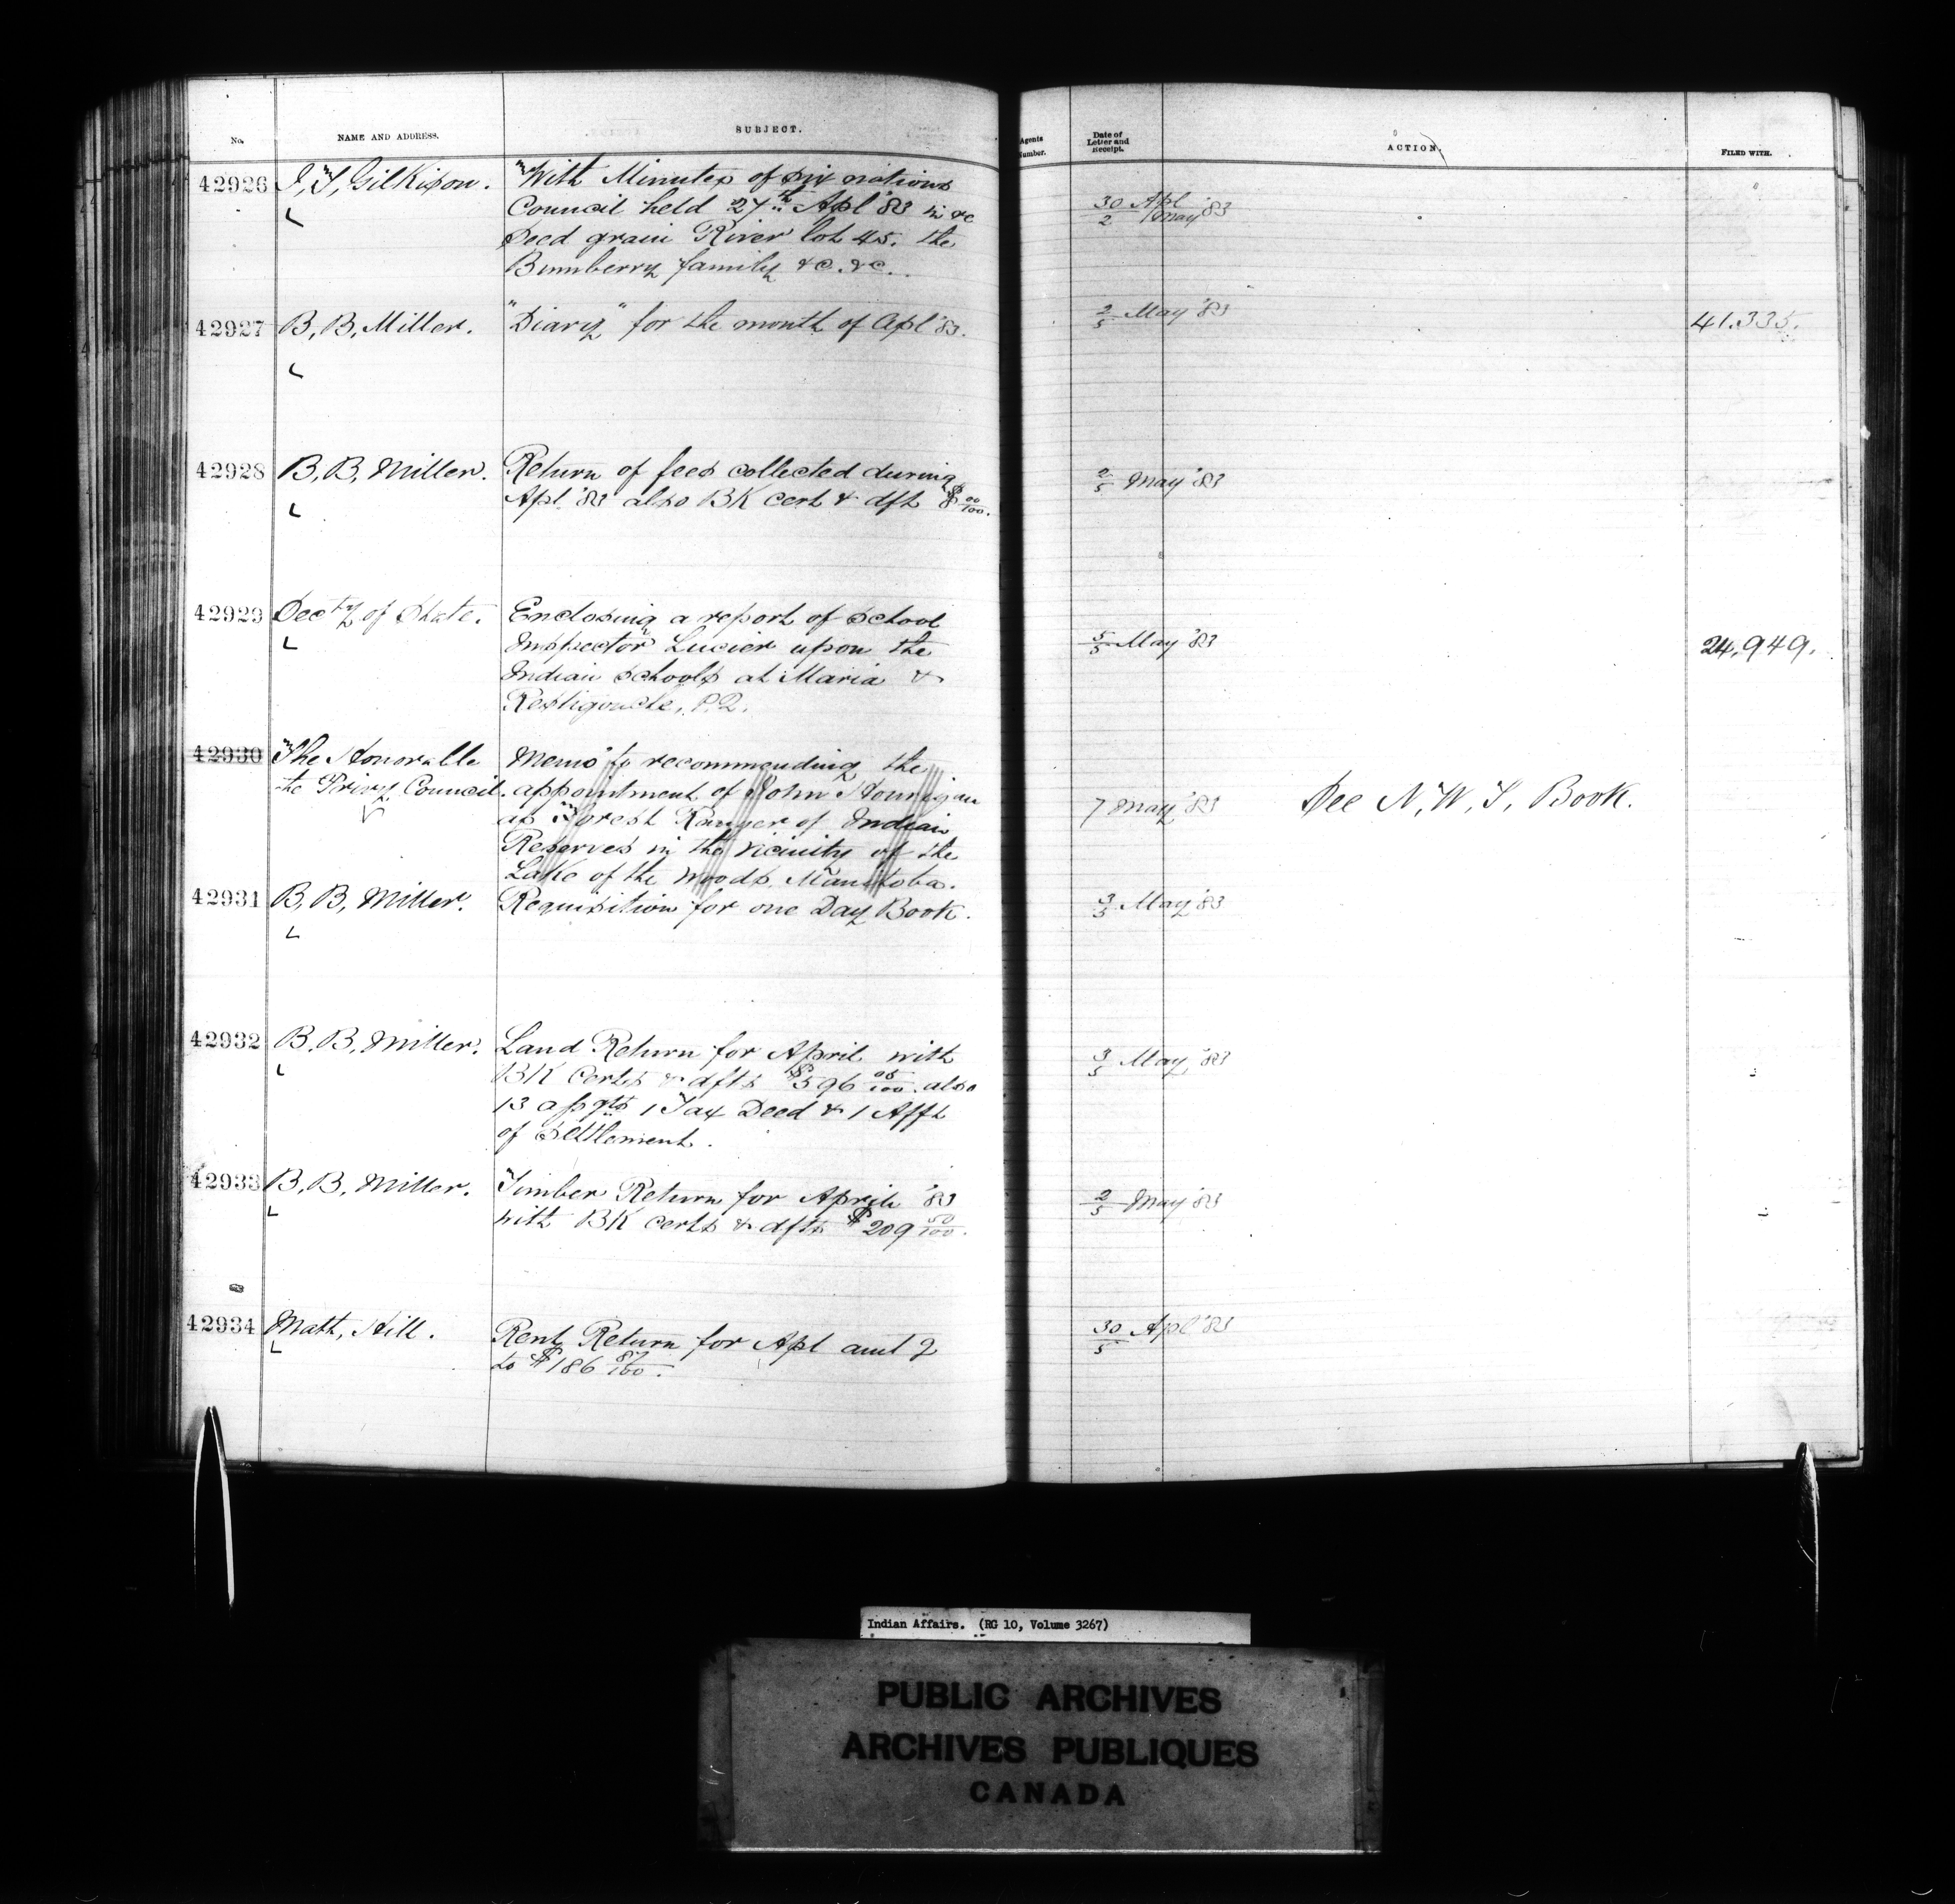 No. NAME AND ADDRESS. SUBJECT. Agents Number. Date of Letter and Receipt. ACTION. FILED WITH.
42926 J, T, Gilkison. With Minutes of Six nations 30 Apl
Council held 27th Apl '83 in re 2 May '83
Seed grain River lot 45. the
Bumberry family &c. &c.
42927 B, B, Miller. "Diary" for the month of Apl '83. 2/5 May '83 41.335.
42928 B, B, Miller. Return of fees collected during 2/5 May '83
Apl '83 also BK cert & dft $8 00/100.
42929 Secty of State. Enclosing a report of School
Inspector Lucier upon the 5/5 May '83 24.949.
Indian Schools at Maria &
Restigouche, P.Q.
42930 The Honoralle Memo to recommending the
the Privy Council. appointment of John Hourigan 7 May '83 See N, W, T, Book.
as Forest Ranger of Indian
Reserves in the vicinity of the
Lake of the Woods, Manitoba.
42931 B, B, Miller. Requisition for one Day Book. 3/5 May '83
42932 B. B, Miller. Land Return for April with 3/5 May, '83
BK Certs & dfts $596 05/100. also
13 assgts 1 Tax Deed & 1 Afft
of Settlement.
42933 B, B, Miller. Timber Return for April '83 2/5 May '83
with BK certs & dfts $209 50/100.
42934 Matt, Hill. Rent Return for Apl amt g 30/5 Apl '83
to $186 87/100.
Indian Affairs. (RG 10, Volume 3267)
PUBLIC ARCHIVES
ARCHIVES PUBLIQUES
CANADA